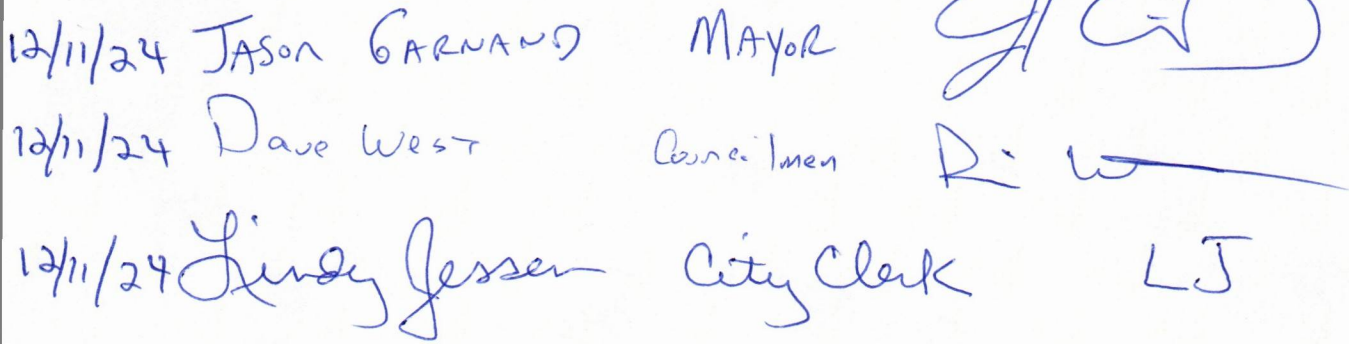 12/11/24 JASON GARNAND MAYOR
12/11/24 Dave West Councilmen
12/11/24 Lindy Jessen City Clerk LJ